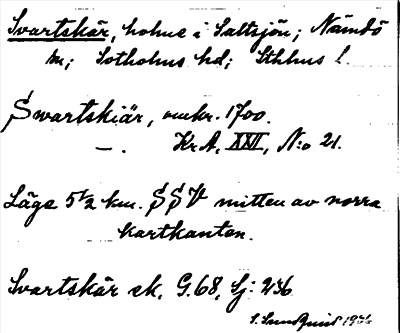 Svartskär, holme i Saltsjön; Nämdö
sn; Sotholms hd; Sthlms l.
Swartskiär, omkr. 1700.
—. Kr A, XXII, N:o 21.
Läge 5 1/2 km. SSV mitten av norra
kartkanten.
Svartskär ek. G.68, Sj: 236
S. Sundquist 1936